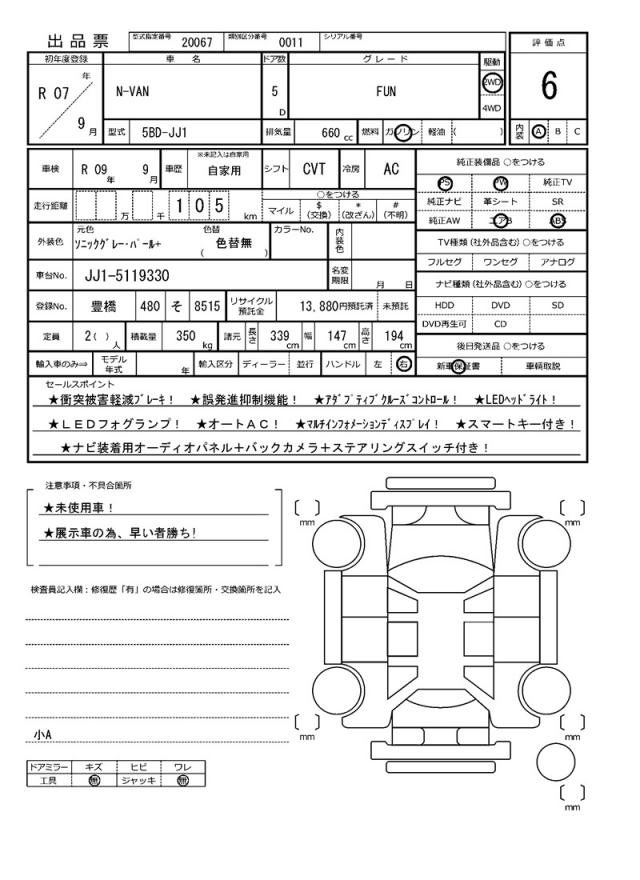 出品票 型式指定番号 20067 類別区分番号 0011 シリアル番号
評価点
初年度登録 車名 ドア数 グレード 駆動
R 07 年 9 月 N-VAN 5 D FUN 2WD 4WD 6
型式 5BD-JJ1 排気量 660 cc 燃料 ガソリン 軽油 ( ) 内装 A B C
車検 R 09 年 9 月 車歴 ※未記入は自家用 自家用 シフト CVT 冷房 AC
純正装備品 ○をつける
PS PW 純正TV
純正ナビ 革シート SR
純正AW エアB ABS
走行距離 万 千 1 0 5 km ○をつける マイル $ (交換) * (改ざん) # (不明)
外装色 元色 ソニックグレー・パール+ 色替 色替無 ( ) カラーNo. 内装色
TV種類 (社外品含む) ○をつける
フルセグ ワンセグ アナログ
車台No. JJ1-5119330 名変期限 月 日
ナビ種類 (社外品含む) ○をつける
HDD DVD SD
DVD再生可 CD
登録No. 豊橋 480 そ 8515 リサイクル預託金 13,880円預託済 未預託
定員 2 ( ) 人 積載量 350 kg 諸元 長さ 339 cm 幅 147 cm 高さ 194 cm
後日発送品 ○をつける
新車保証書 車輌取説
輸入車のみ⇒ モデル年式 年 輸入区分 ディーラー 並行 ハンドル 左 右
セールスポイント
★衝突被害軽減ブレーキ! ★誤発進抑制機能! ★アダプティブクルーズコントロール! ★LEDヘッドライト!
★LEDフォグランプ! ★オートAC! ★マルチインフォメーションディスプレイ! ★スマートキー付き!
★ナビ装着用オーディオパネル+バックカメラ+ステアリングスイッチ付き!
注意事項・不具合箇所
★未使用車!
★展示車の為、早い者勝ち!
検査員記入欄:修復歴「有」の場合は修復箇所・交換箇所を記入
小A
ドアミラー キズ ヒビ ワレ
工具 無 ジャッキ 無
[ ] mm
[ ] mm
[ ] mm
[ ] mm
[ ] mm